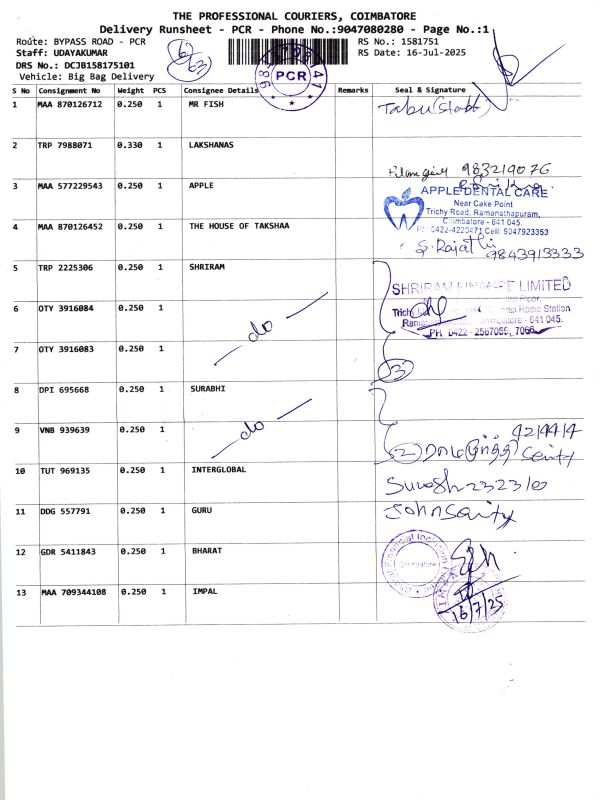 THE PROFESSIONAL COURIERS, COIMBATORE
Delivery Runsheet - PCR - Phone No.:9047080280 - Page No.:1
Route: BYPASS ROAD - PCR
Staff: UDAYAKUMAR
DRS No.: DCJB158175101
Vehicle: Big Bag Delivery
62
63
PCR
RS No.: 1581751
RS Date: 16-Jul-2025
S No Consignment No Weight PCS Consignee Details Remarks Seal & Signature
1 MAA 870126712 0.250 1 MR FISH
2 TRP 7988071 0.330 1 LAKSHANAS
983219076
3 MAA 577229543 0.250 1 APPLE
APPLE DENTAL CARE
Near Cake Point
Trichy Road, Ramanathapuram,
Coimbatore - 641 045.
Ph: 0422-4220471 Cell: 9047923353
4 MAA 870126452 0.250 1 THE HOUSE OF TAKSHAA
S. Rajathi
9843913333
5 TRP 2225306 0.250 1 SHRIRAM
SHRIRAM FINANCE LIMITED
Radio Station
Coimbatore - 641 045.
PH: 0422 - 2567055, 7066
6 OTY 3916084 0.250 1
— do —
7 OTY 3916083 0.250 1
3
8 DPI 695668 0.250 1 SURABHI
9 VNB 939639 0.250 1
— do —
2
10 TUT 969135 0.250 1 INTERGLOBAL
Suresh 232310
11 DDG 557791 0.250 1 GURU
John
12 GDR 5411843 0.250 1 BHARAT
13 MAA 709344108 0.250 1 IMPAL
16/7/25